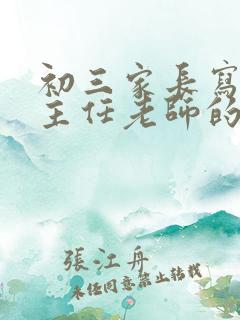 初三家長寫
主任老師的
張江舟
未經同意禁止轉載